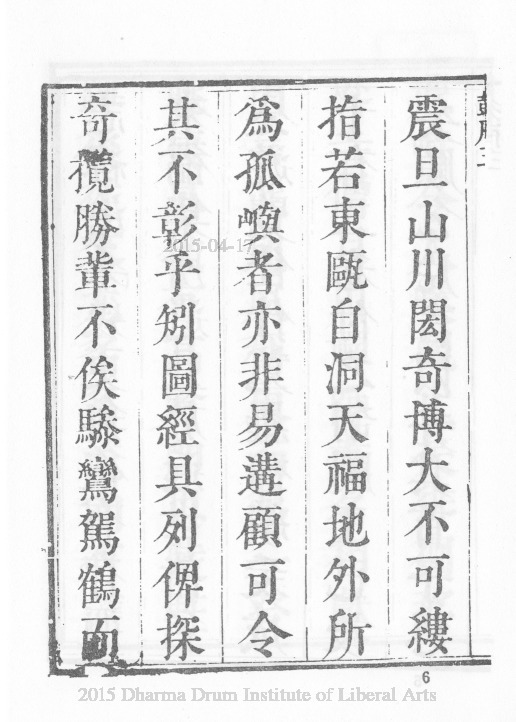 震旦山川閎奇博大不可縷
指若東甌自洞天福地外所
為孤嶼者亦非易遘顧可令
其不彰乎矧圖經具列俾探
奇攬勝輩不俟驂鸞駕鶴而
2015-04-17
6
2015 Dharma Drum Institute of Liberal Arts